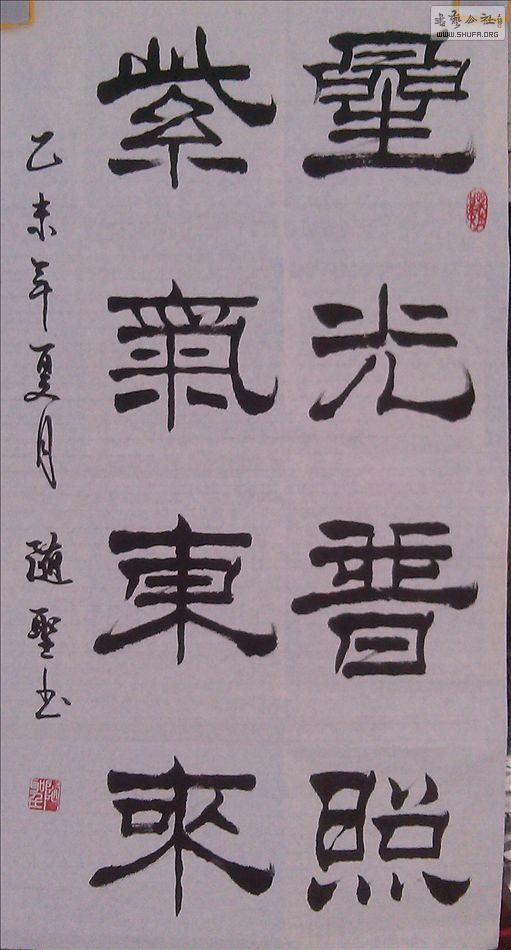 書藝公社
WWW.SHUFA.ORG
曐光普照
紫氣東來
乙未年夏月 隨聖书